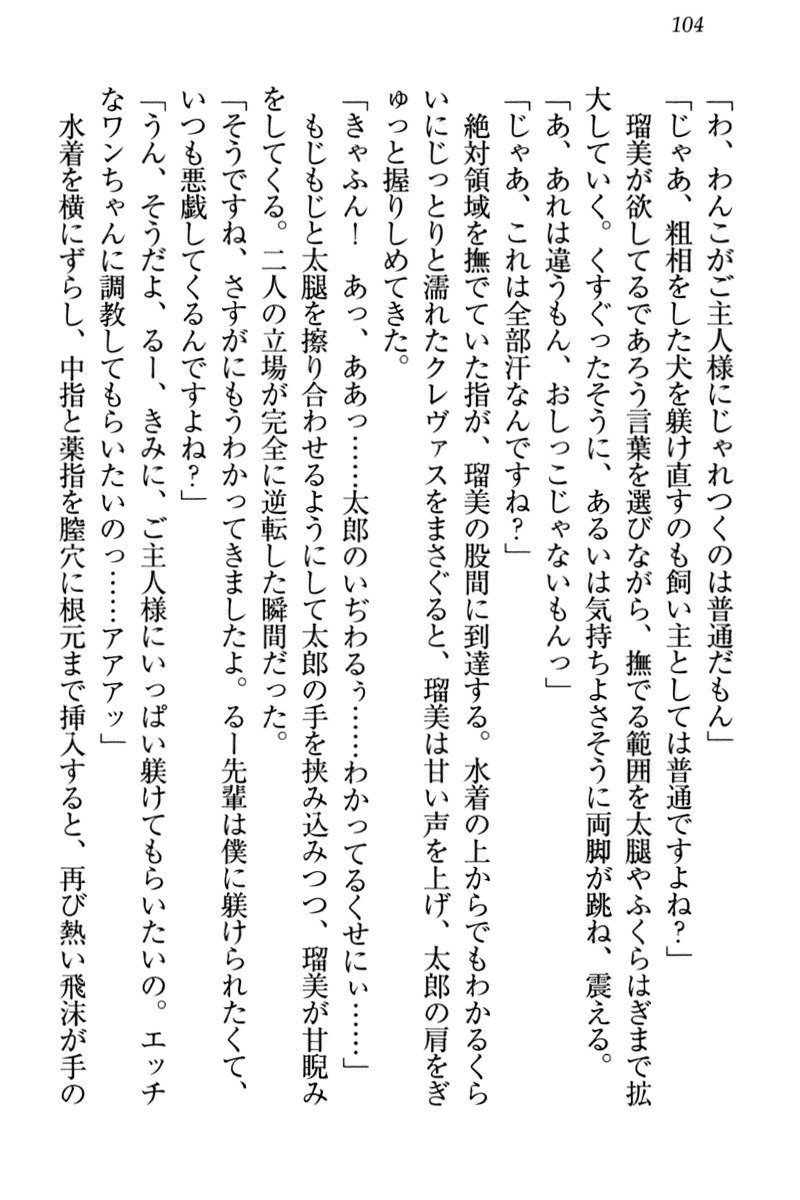 104
「わ、わんこがご主人様にじゃれつくのは普通だもん」
「じゃあ、粗相をした犬を躾け直すのも飼い主としては普通ですよね？」
瑠美が欲してるであろう言葉を選びながら、撫でる範囲を太腿やふくらはぎまで拡
大していく。くすぐったそうに、あるいは気持ちよさそうに両脚が跳ね、震える。
「あ、あれは違うもん、おしっこじゃないもんっ」
「じゃあ、これは全部汗なんですね？」
絶対領域を撫でていた指が、瑠美の股間に到達する。水着の上からでもわかるくら
いにじっとりと濡れたクレヴァスをまさぐると、瑠美は甘い声を上げ、太郎の肩をぎ
ゅっと握りしめてきた。
「きゃふん！　あっ、ああっ……太郎のいぢわるぅ……わかってるくせにぃ……」
もじもじと太腿を擦り合わせるようにして太郎の手を挟み込みつつ、瑠美が甘睨み
をしてくる。二人の立場が完全に逆転した瞬間だった。
「そうですね、さすがにもうわかってきましたよ。るー先輩は僕に躾けられたくて、
いつも悪戯してくるんですよね？」
「うん、そうだよ、るー、きみに、ご主人様にいっぱい躾けてもらいたいの。エッチ
なワンちゃんに調教してもらいたいのっ……アアアッ」
水着を横にずらし、中指と薬指を膣穴に根元まで挿入すると、再び熱い飛沫が手の